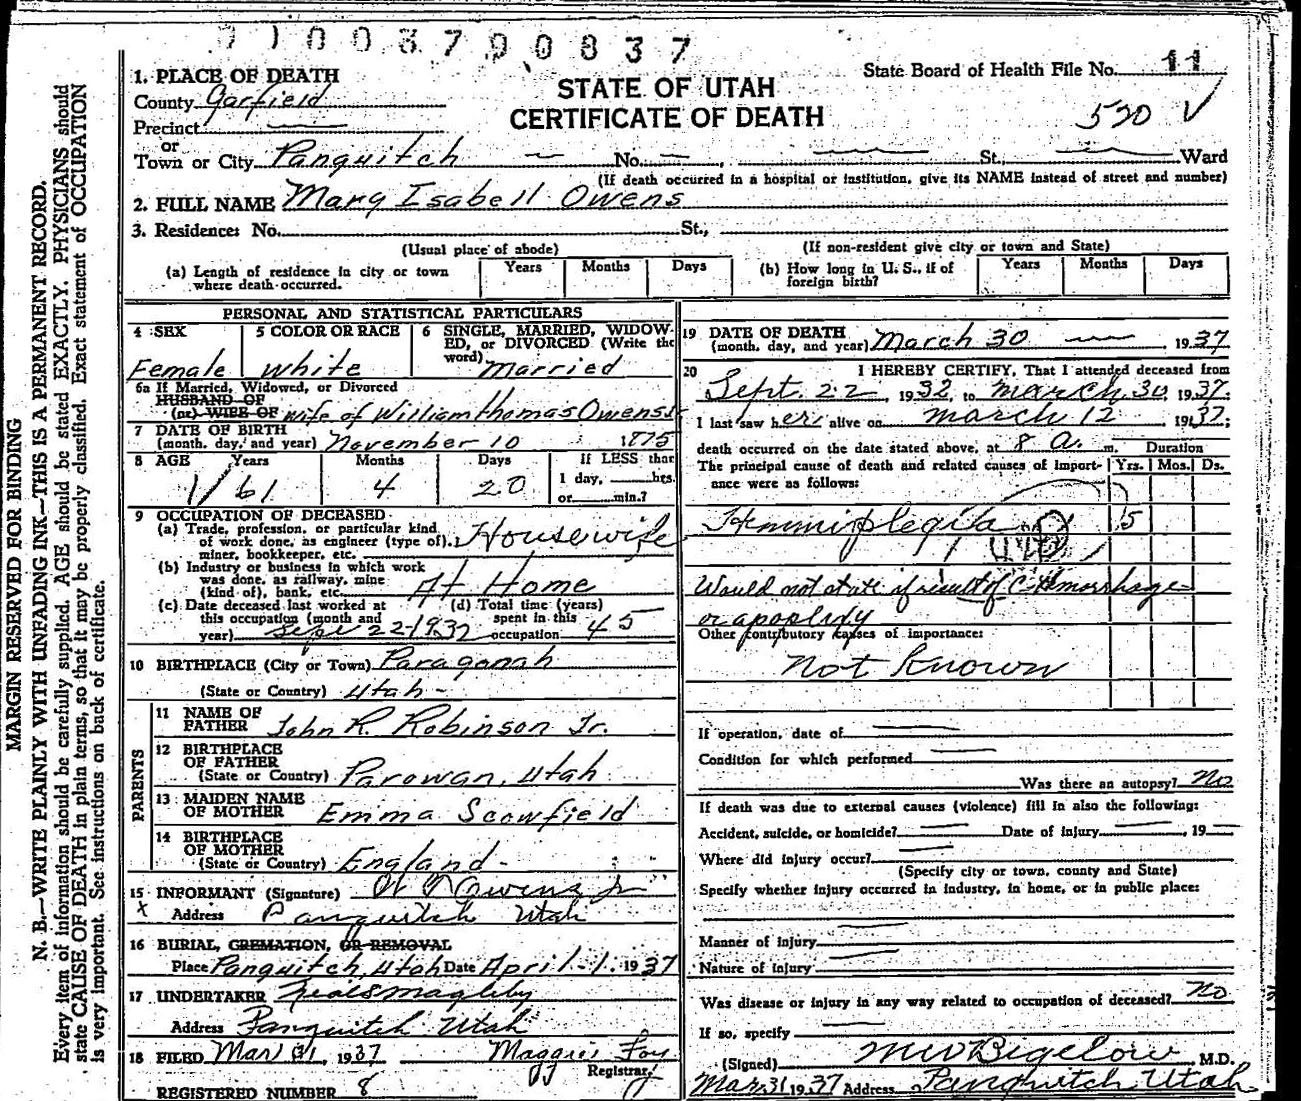 7100370083 7
1. PLACE OF DEATH
County Garfield
Precinct
or
Town or City Panguitch No. , St., Ward
STATE OF UTAH
CERTIFICATE OF DEATH
State Board of Health File No. 11
520
(If death occurred in a hospital or institution, give its NAME instead of street and number)
2. FULL NAME Mary Isabell Owens
3. Residence: No. St.,
(Usual place of abode) (If non-resident give city or town and State)
(a) Length of residence in city or town where death occurred. Years Months Days
(b) How long in U. S., if of foreign birth? Years Months Days
PERSONAL AND STATISTICAL PARTICULARS
4 SEX Female
5 COLOR OR RACE White
6 SINGLE, MARRIED, WIDOWED, or DIVORCED (Write the word) Married
6a If Married, Widowed, or Divorced
HUSBAND OF
(or) WIFE OF wife of William thomas Owens Jr
7 DATE OF BIRTH
(month, day, and year) November 10 1875
8 AGE Years 61 Months 4 Days 20 If LESS than
1 day, hrs.
or min.?
9 OCCUPATION OF DECEASED
(a) Trade, profession, or particular kind
of work done, as engineer (type of), Housewife
miner, bookkeeper, etc.
(b) Industry or business in which work
was done, as railway, mine
(kind of), bank, etc. At Home
(c) Date deceased last worked at
this occupation (month and
year) Sept 22 1932
(d) Total time (years)
spent in this
occupation 45
10 BIRTHPLACE (City or Town) Paragonah
(State or Country) Utah -
PARENTS
11 NAME OF
FATHER John R. Robinson Jr.
12 BIRTHPLACE
OF FATHER
(State or Country) Parowan, Utah
13 MAIDEN NAME
OF MOTHER Emma Scowfield
14 BIRTHPLACE
OF MOTHER
(State or Country) England -
15 INFORMANT (Signature) W T Owens Jr
X Address Panguitch Utah
16 BURIAL, CREMATION, OR REMOVAL
Place Panguitch, Utah Date April 1. 1937
17 UNDERTAKER Neals Magleby
Address Panguitch Utah
18 FILED Mar 31, 1937 Maggie Foy
Registrar.
REGISTERED NUMBER 8
19 DATE OF DEATH
(month, day, and year) March 30 1937
20 I HEREBY CERTIFY, That I attended deceased from
Sept. 22, 1932, to March 30, 1937.
I last saw her alive on March 12 1937;
death occurred on the date stated above, at 8 a. m. Duration
The principal cause of death and related causes of importance were as follows: Yrs. Mos. Ds.
Hemmiplegia 5
Would not state if result of C Hemorrhage
or apoplexy
Other contributory causes of importance:
Not Known
If operation, date of
Condition for which performed
Was there an autopsy? No
If death was due to external causes (violence) fill in also the following:
Accident, suicide, or homicide? Date of injury , 19
Where did injury occur?
(Specify city or town, county and State)
Specify whether injury occurred in industry, in home, or in public place:
Manner of injury
Nature of injury
Was disease or injury in any way related to occupation of deceased? No
If so, specify
(Signed) M W Bigelow, M.D.
Mar. 31 1937 Address Panguitch, Utah
MARGIN RESERVED FOR BINDING
N. B.—WRITE PLAINLY WITH UNFADING INK—THIS IS A PERMANENT RECORD.
Every item of information should be carefully supplied. AGE should be stated EXACTLY. PHYSICIANS should
state CAUSE OF DEATH in plain terms, so that it may be properly classified. Exact statement of OCCUPATION
is very important. See instructions on back of certificate.